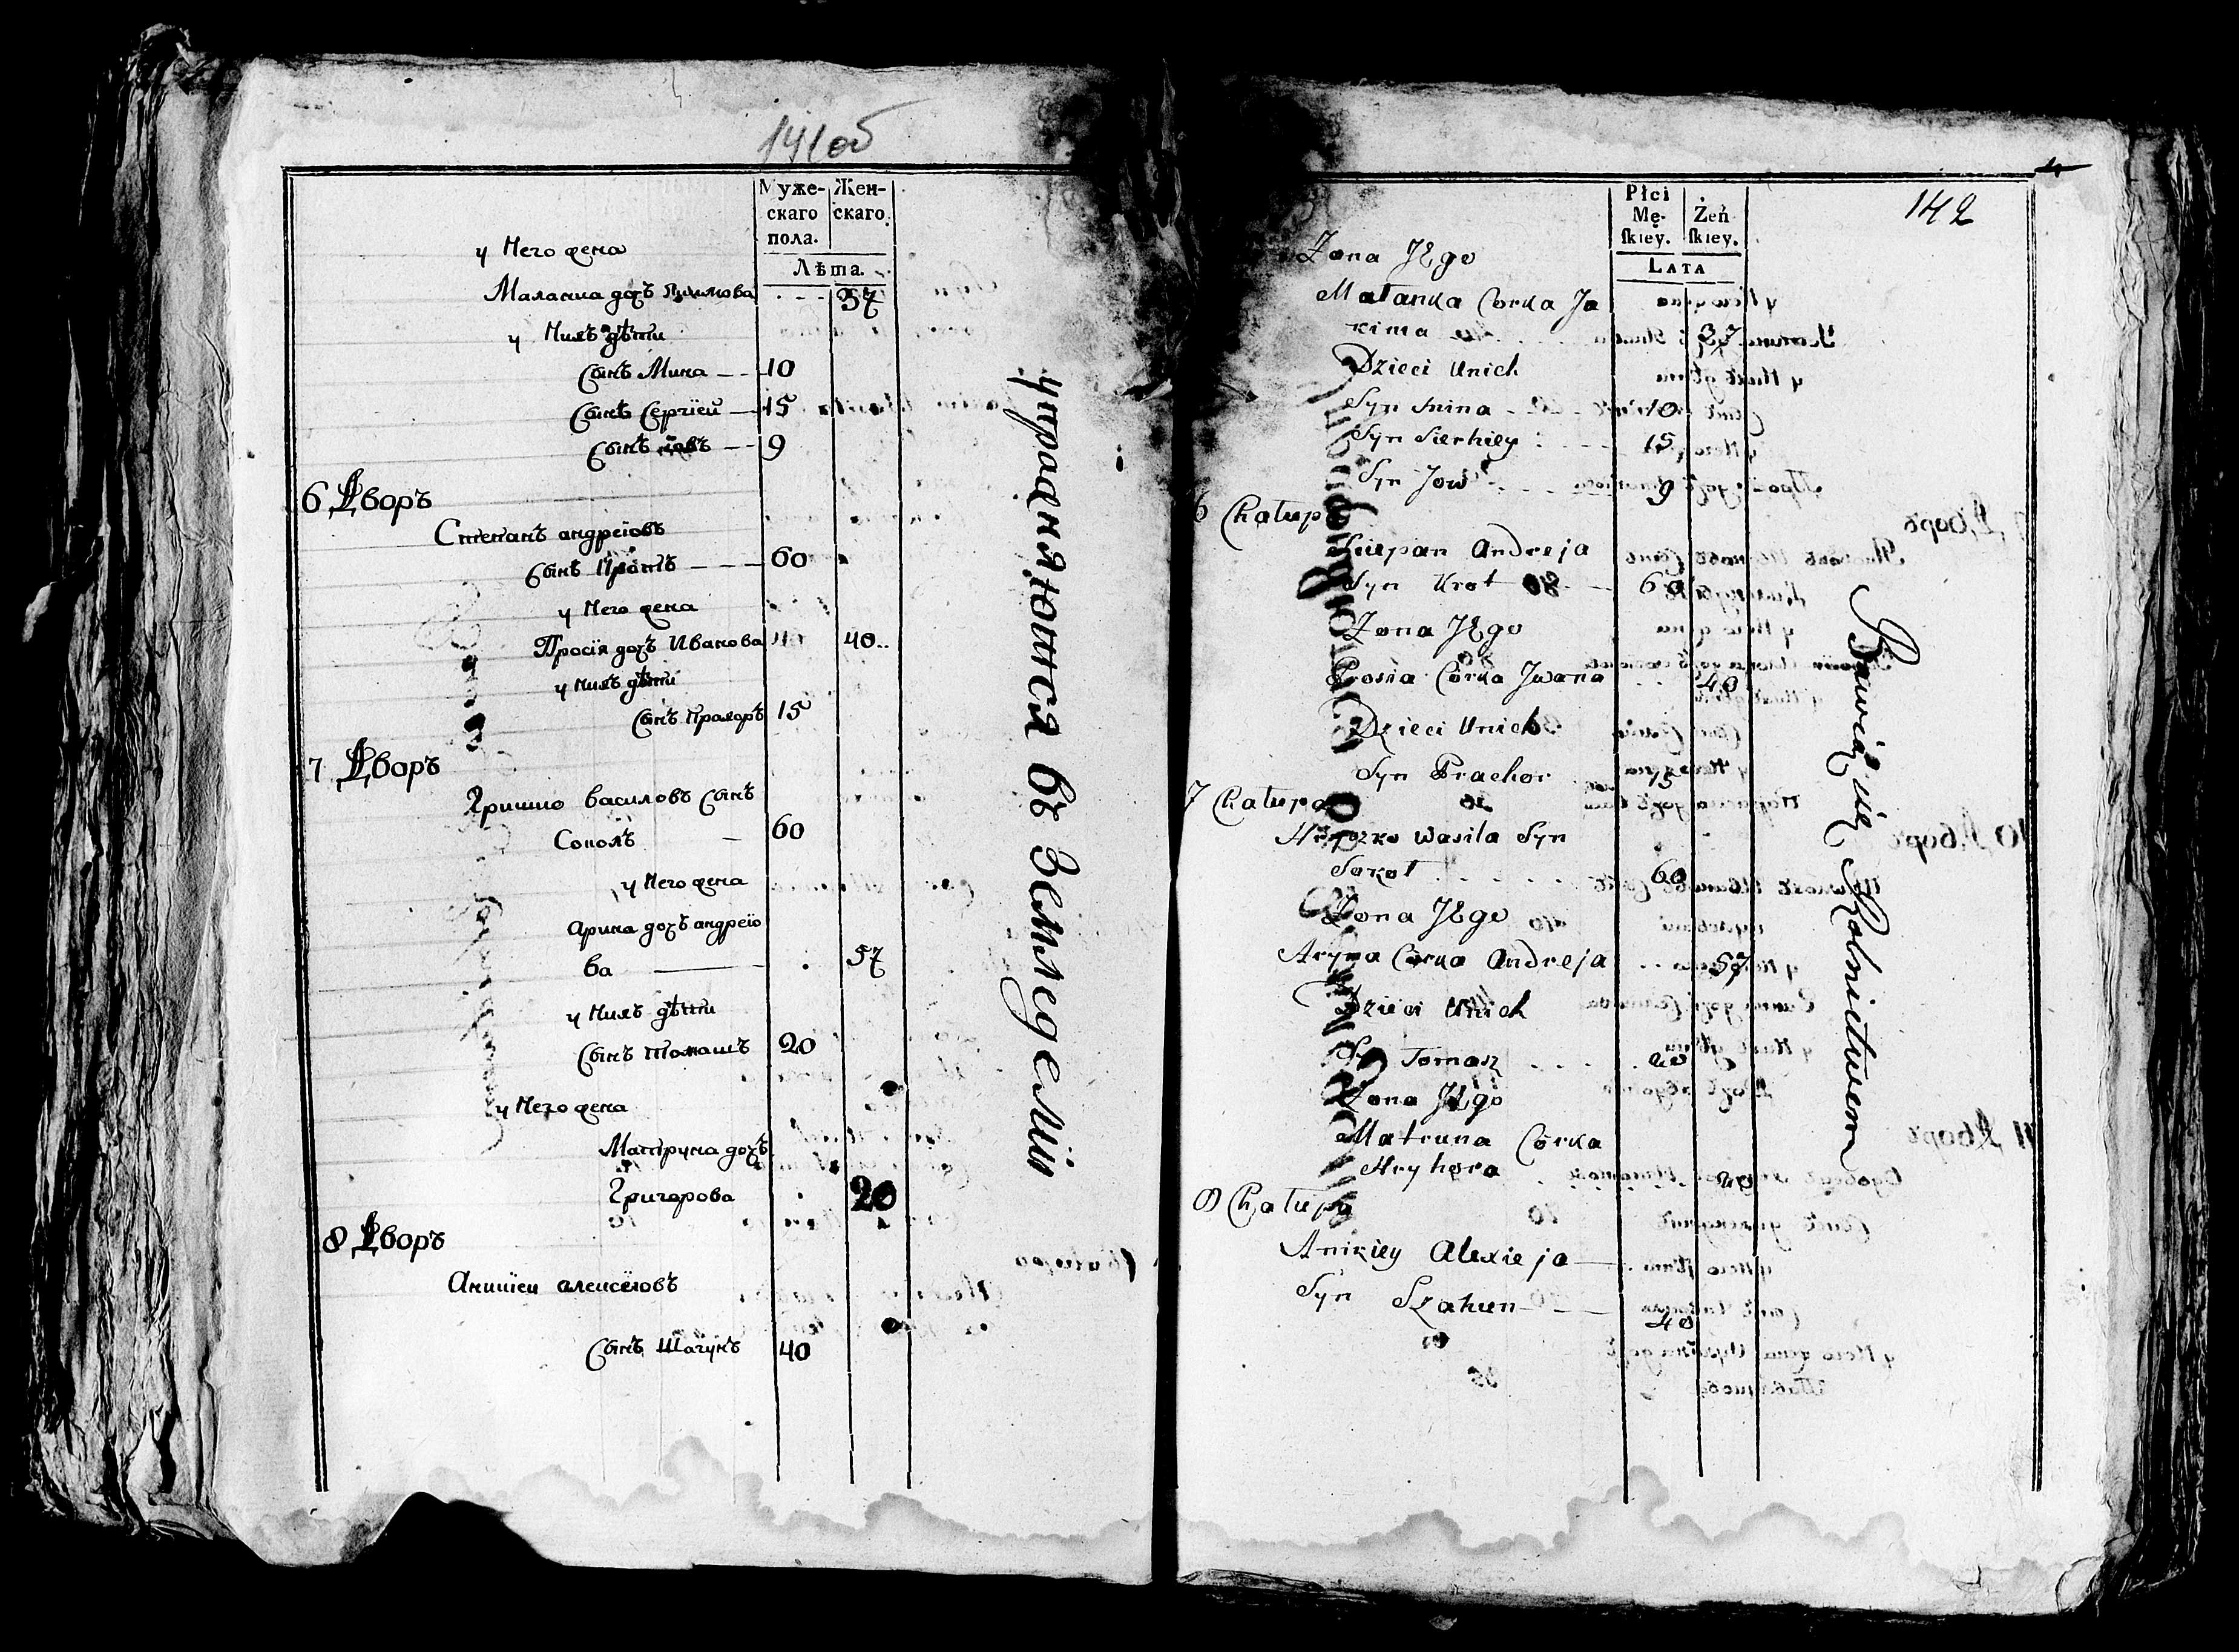 141об
Муже- Жен-
скаго скаго.
пола.
Лѣта.
у Него жена
Маланка дочъ Якимова 37
у Нихъ дѣти
Сынъ Мина 10
Сынъ Сергiей 15
Сынъ iовъ 9
6 Дворъ
Степанъ андреiовъ
Сынъ Кротъ 60
у Него жена
Просiя дочъ Иванова 40
у Нихъ дѣти
Сынъ Прахоръ 15
7 Дворъ
Гришко василовъ Сынъ
Соколъ 60
у Него жена
Арина дочъ андреiо
ва 57
у Нихъ дѣти
Сынъ томашъ 20
у Него жена
Матруна дочъ
Григорова 20
8 Дворъ
Аникiеи алексеiовъ
Сынъ Шагунъ 40
упражняются въ земледелiи
142
Płci
Mę- Żeń
skiey. skiey.
LATA
Zona JEgo
Małanka Corka Ja
kima 37
Dzieci Unich
Syn Mina 10
Syn Sierhiey 15
Syn Jow 9
6 Chatupa
Sciepan Andreja
Syn Krot 60
Zona JEgo
Prosia Corka Jwana 40
Dzieci Unich
Syn Prachor 15
7 Chatupa
Hryszko Wasila Syn
Sokoł 60
Zona JEgo
Aryna Corka Andreja 57
Dzieci Unich
Syn Tomasz 20
Zona JEgo
Matruna Corka
Hryhora 20
8 Chatupa
Anikiey Alexieja
Syn Szahun 40
Bawią się Rolnictwem